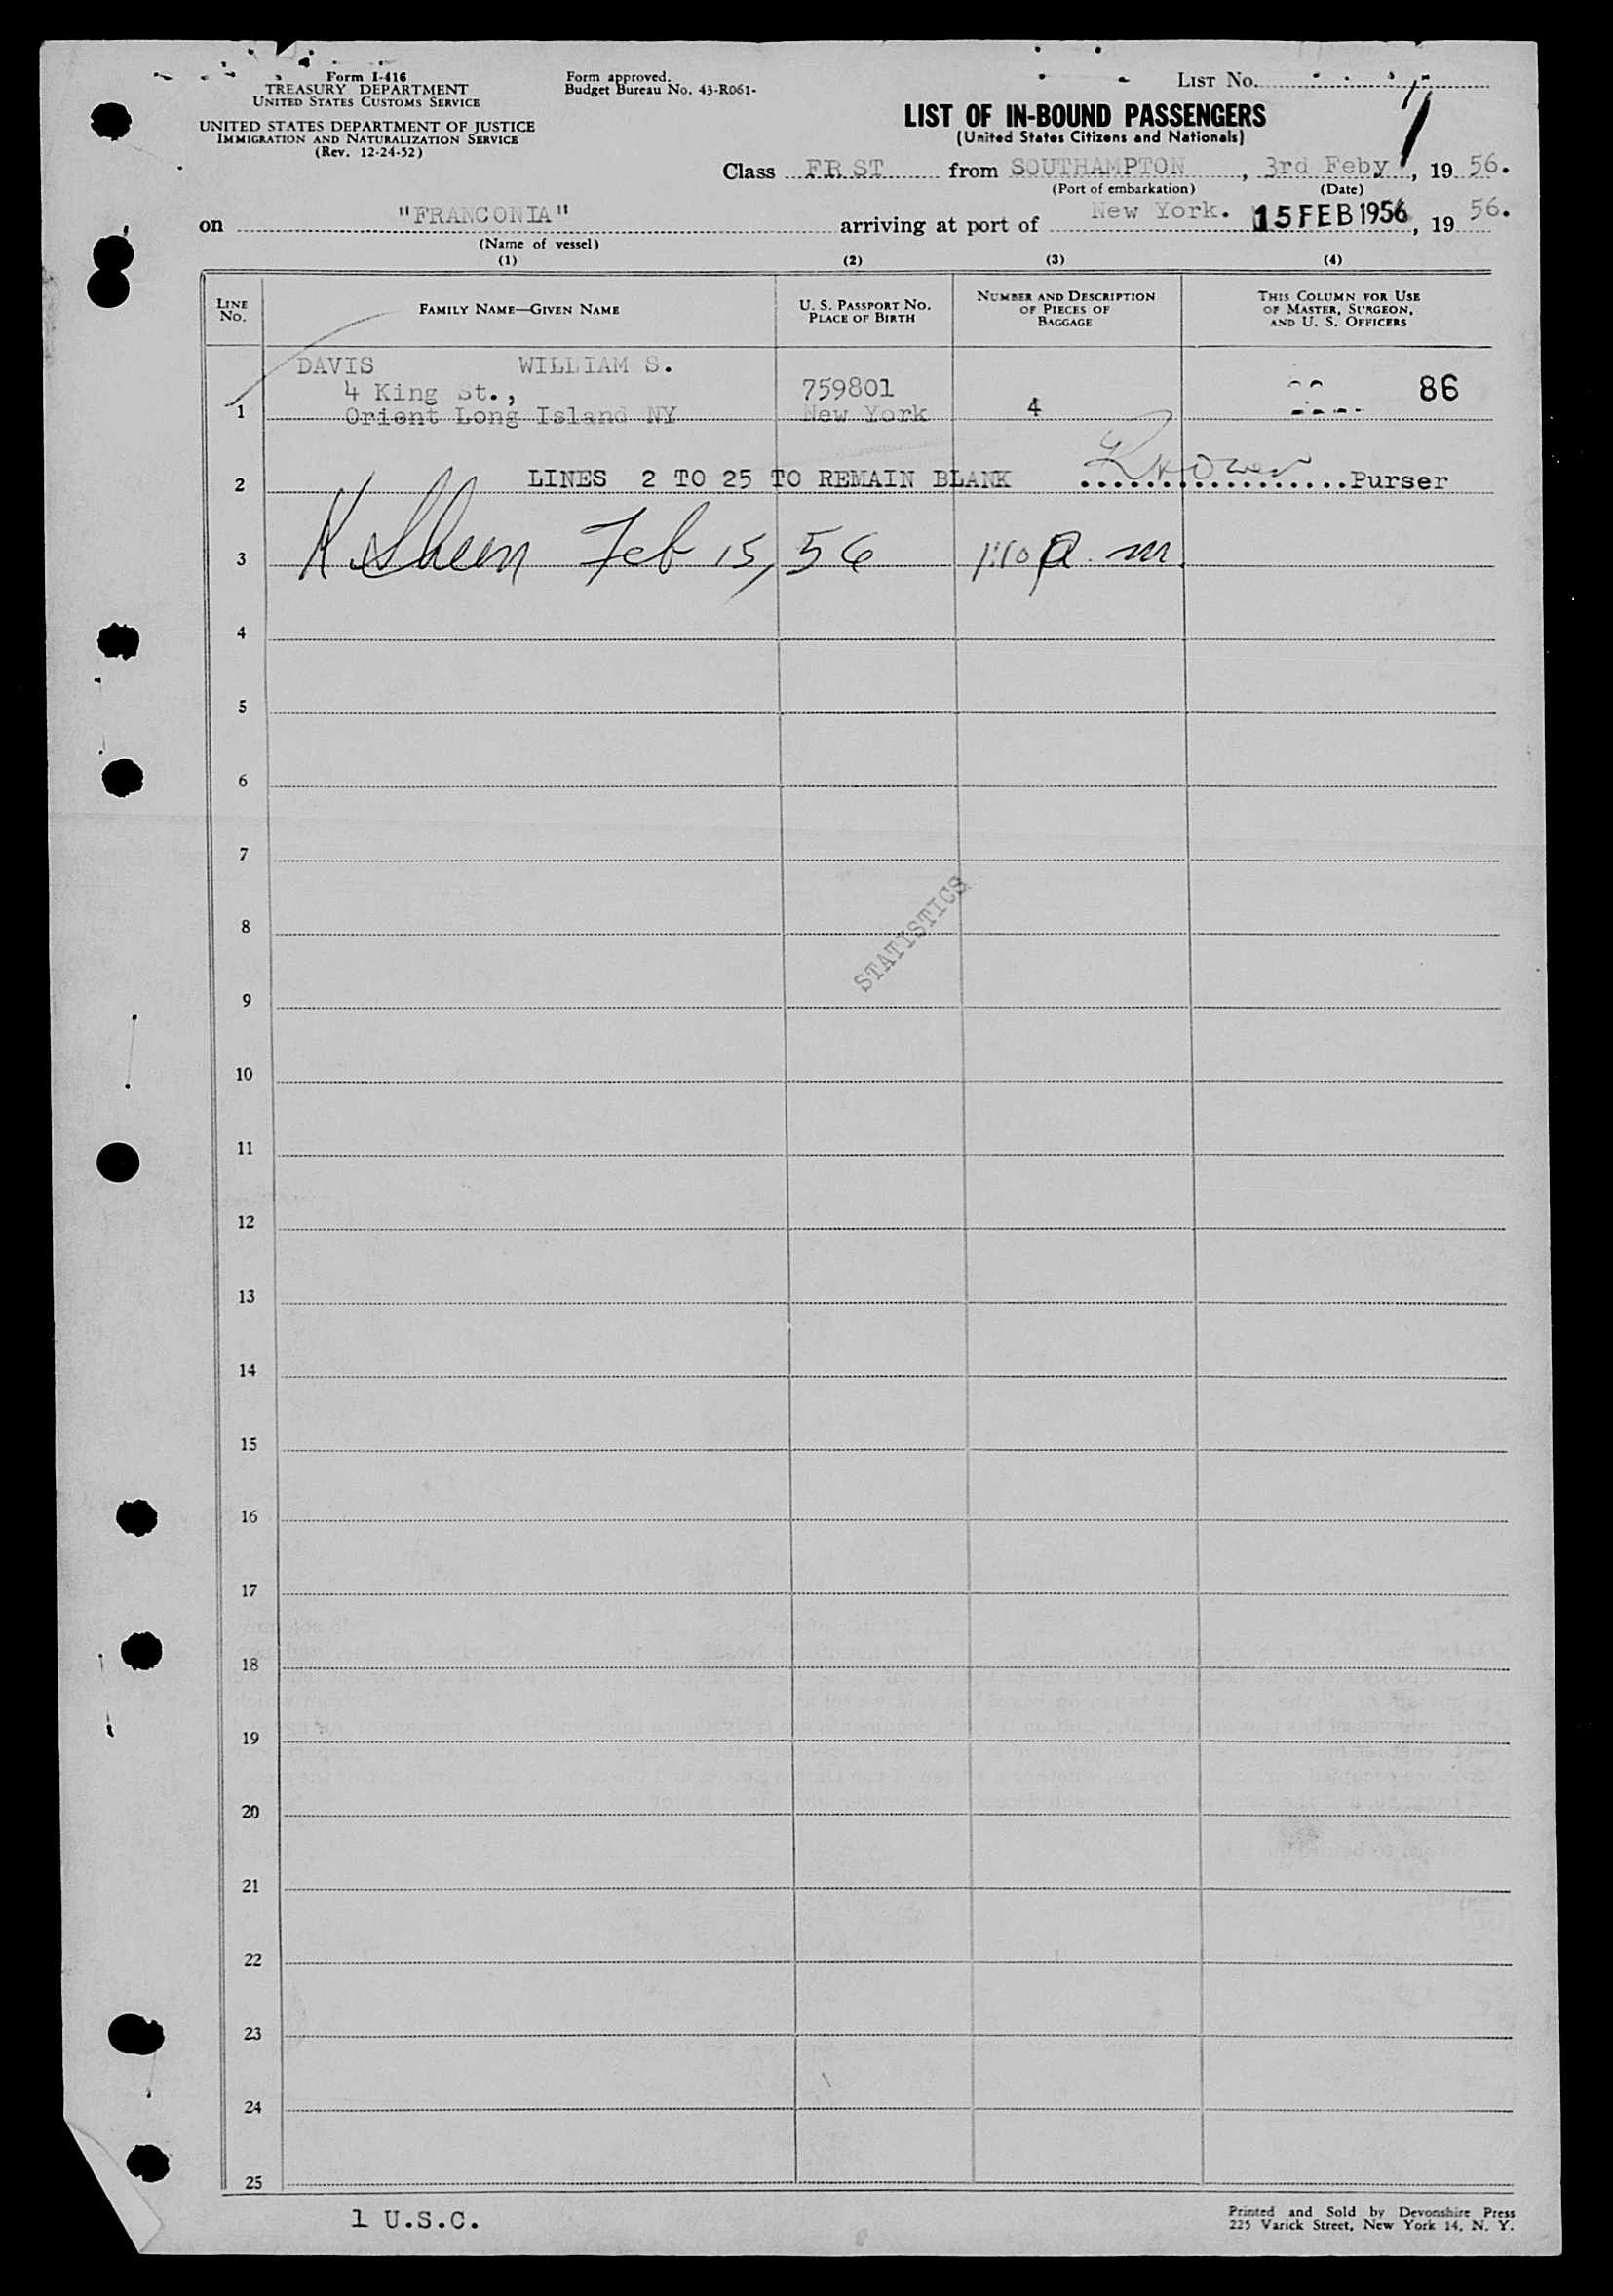 Form I-416
TREASURY DEPARTMENT
UNITED STATES CUSTOMS SERVICE
UNITED STATES DEPARTMENT OF JUSTICE
IMMIGRATION AND NATURALIZATION SERVICE
(Rev. 12-24-52)
Form approved.
Budget Bureau No. 43-R061-
LIST NO.
LIST OF IN-BOUND PASSENGERS
(United States Citizens and Nationals)
Class FRST from SOUTHAMPTON, 3rd Feby, 19 56.
(Port of embarkation) (Date)
on "FRANCONIA" arriving at port of New York. 15 FEB 1956, 19 56.
(Name of vessel)
(1) (2) (3) (4)
LINE NO. FAMILY NAME—GIVEN NAME U. S. PASSPORT NO. PLACE OF BIRTH NUMBER AND DESCRIPTION OF PIECES OF BAGGAGE THIS COLUMN FOR USE OF MASTER, SURGEON, AND U. S. OFFICERS
DAVIS WILLIAM S.
4 King St., 759801 86
1 Orient Long Island NY New York 4
2 LINES 2 TO 25 TO REMAIN BLANK Purser
3 Feb 15, 56 a.m.
4
5
6
7
8
STATISTICS
9
10
11
12
13
14
15
16
17
18
19
20
21
22
23
24
25
1 U.S.C.
Printed and Sold by Devonshire Press
225 Varick Street, New York 14, N. Y.